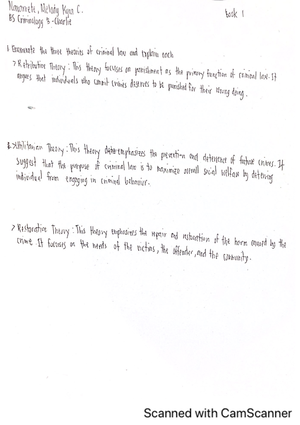 Navarrete, Melody Kyra C.
BS Criminology 3-Charlie
Task 1
1. Enumerate the three theories of criminal law and explain each
> Retributive Theory: This theory focuses on punishment as the primary function of criminal law. It
argues that individuals who commit crimes deserve to be punished for their wrong doing.
> Utilitarian Theory: This theory emphasizes the prevention and deterrence of future crimes. It
suggest that the purpose of criminal law is to maximize overall social welfare by deterring
individual from engaging in criminal behavior.
> Restorative Theory: This theory emphasizes the repair and restoration of the harm caused by the
crime It focuses on the needs of the victims, the offender, and the community.
Scanned with CamScanner